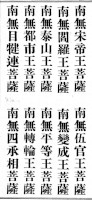 南無宋帝王菩薩
南無伍官王菩薩
南無閻羅王菩薩
南無變成王菩薩
南無泰山王菩薩
南無平等王菩薩
南無都市王菩薩
南無轉輪王菩薩
南無日犍連菩薩
南無四承相菩薩